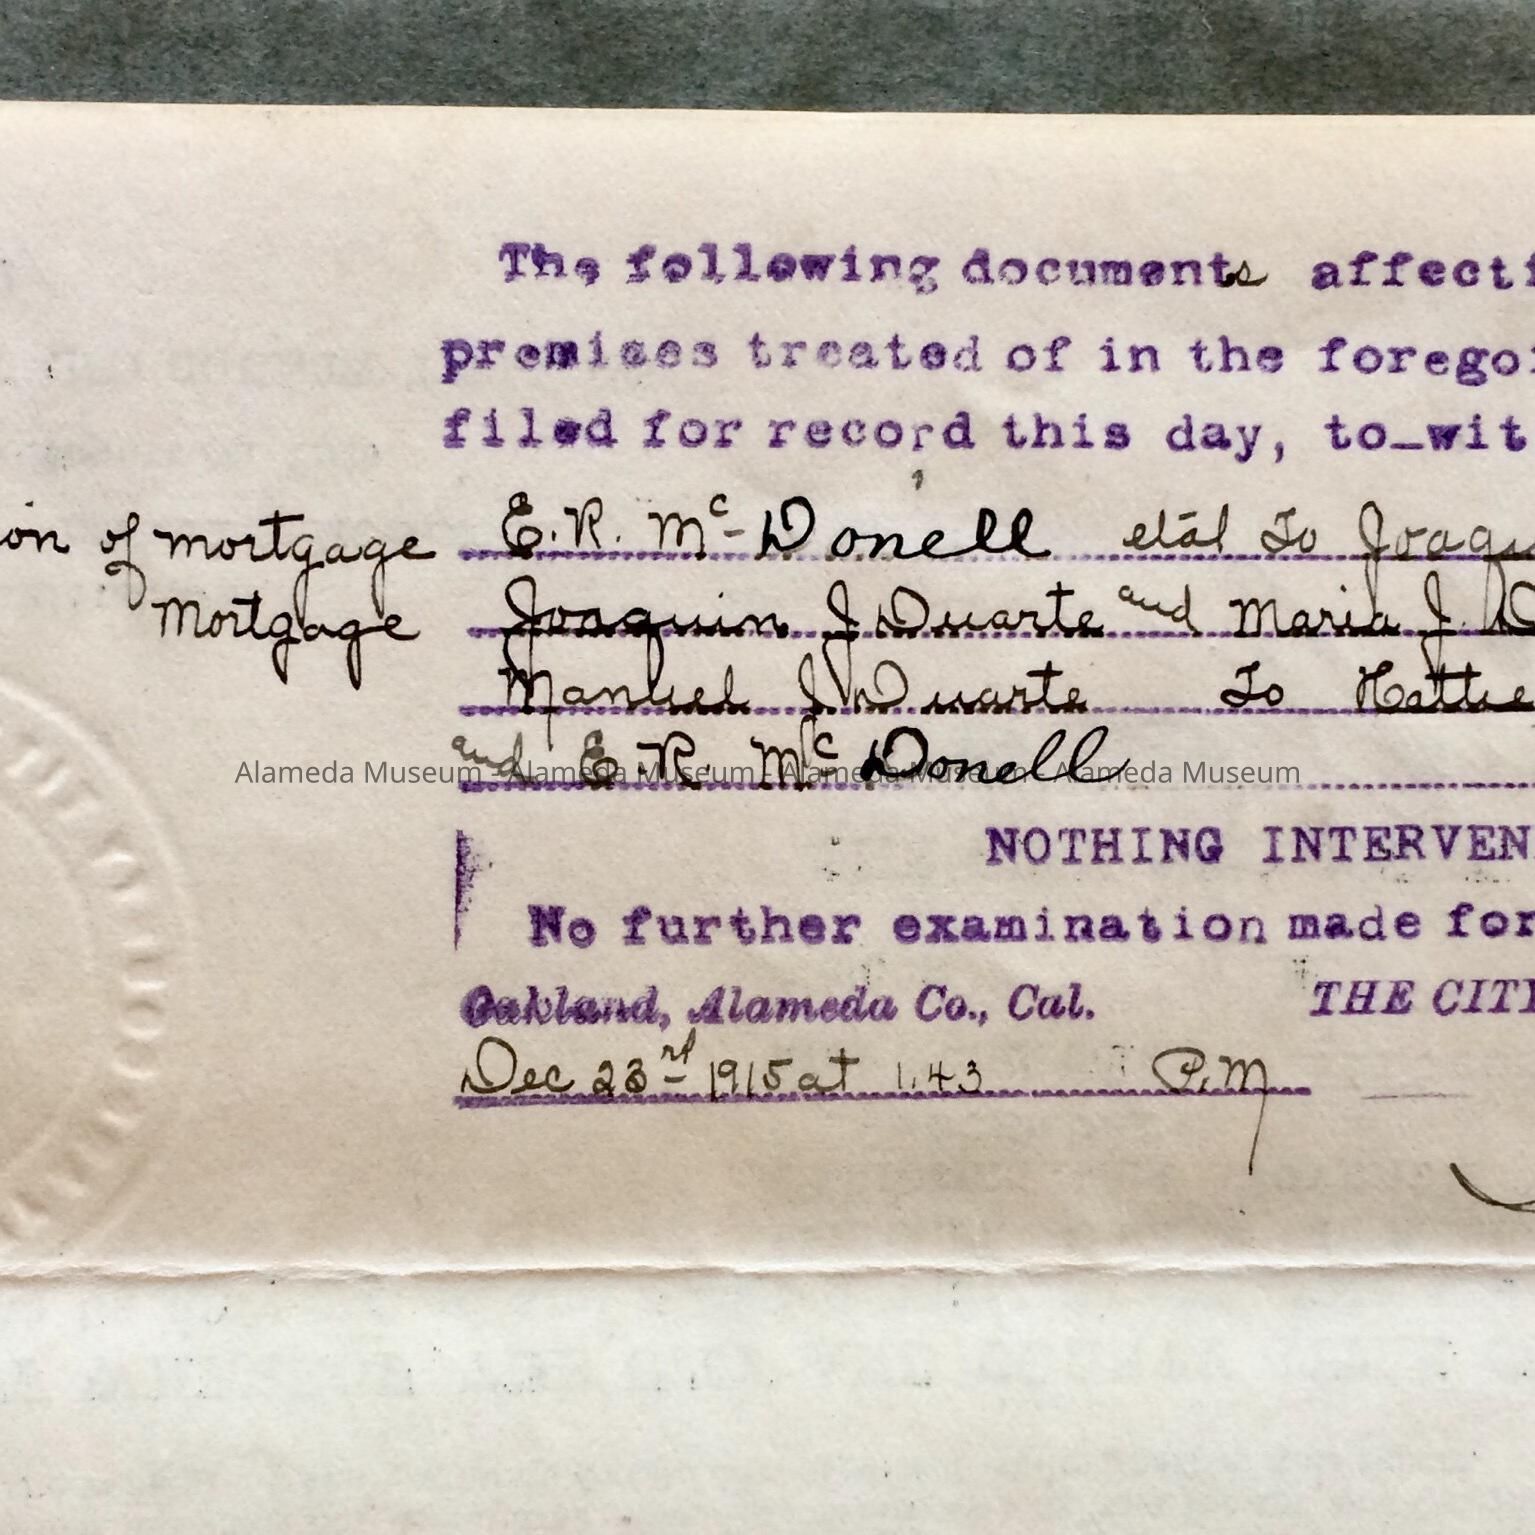 The following documents affecti
premises treated of in the foregoi
filed for record this day, to-wit
on of mortgage E. R. Mc Donell etal To Joaqu
Mortgage Joaquin J Duarte and Maria J. D
Manuel J Duarte To Hattie
and E. R. Mc Donell
Alameda Museum - Alameda Museum - Alameda Museum - Alameda Museum
NOTHING INTERVEN
No further examination made for
Oakland, Alameda Co., Cal. THE CIT
Dec 23rd 1915 at 1.43 P.M